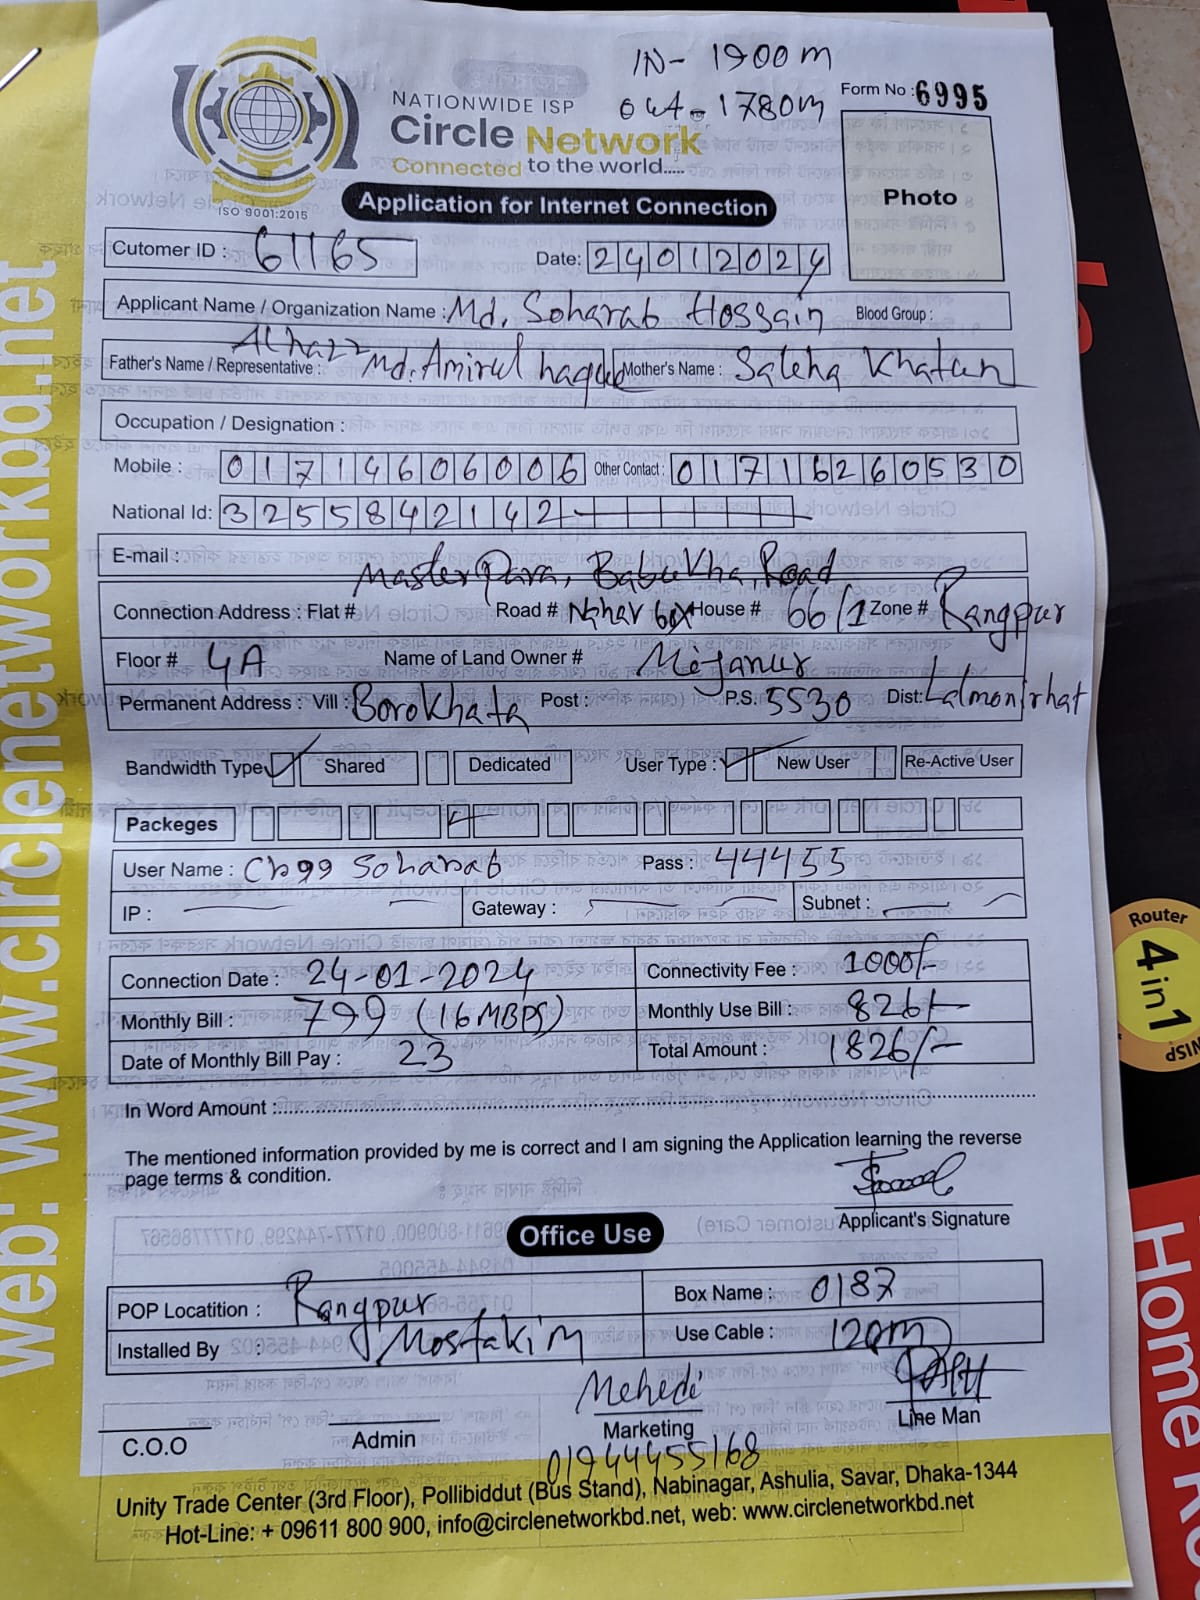 IN- 1900m
out - 1780m
Form No : 6995
NATIONWIDE ISP
Circle Network
Connected to the world.....
ISO 9001:2015
Application for Internet Connection
Photo
Cutomer ID : 61165
Date: 24012024
Applicant Name / Organization Name : Md. Soharab Hossain Blood Group :
Father's Name / Representative : Alhazz Md. Amirul haque Mother's Name : Saleha Khatun
Occupation / Designation :
Mobile : 01714606006 Other Contact : 01716260530
National Id: 3255842142
E-mail :
Masterpara, Babukha, Road
Connection Address : Flat # Road # House # 66/1 Zone # Rangpur
Floor # 4A Name of Land Owner # Mijanur
Permanent Address : Vill : Borokhata Post : P.S. 5530 Dist: Lalmonirhat
Bandwidth Type Shared Dedicated User Type : New User Re-Active User
Packeges
User Name : Cb99 Soharab Pass : 44455
IP : Gateway : Subnet :
Connection Date : 24-01-2024 Connectivity Fee : 1000/-
Monthly Bill : 799 (16MBPS) Monthly Use Bill : 826/-
Date of Monthly Bill Pay : 23 Total Amount : 1826/-
In Word Amount :
The mentioned information provided by me is correct and I am signing the Application learning the reverse
page terms & condition.
Applicant's Signature
Office Use
POP Locatition : Rangpur Box Name : 0187
Installed By : Mostakim Use Cable : 120m
Mehedi
C.O.O Admin Marketing Line Man
01944455168
Unity Trade Center (3rd Floor), Pollibiddut (Bus Stand), Nabinagar, Ashulia, Savar, Dhaka-1344
Hot-Line: + 09611 800 900, info@circlenetworkbd.net, web: www.circlenetworkbd.net
web: www.circlenetworkbd.net
Router
4 in 1
Home